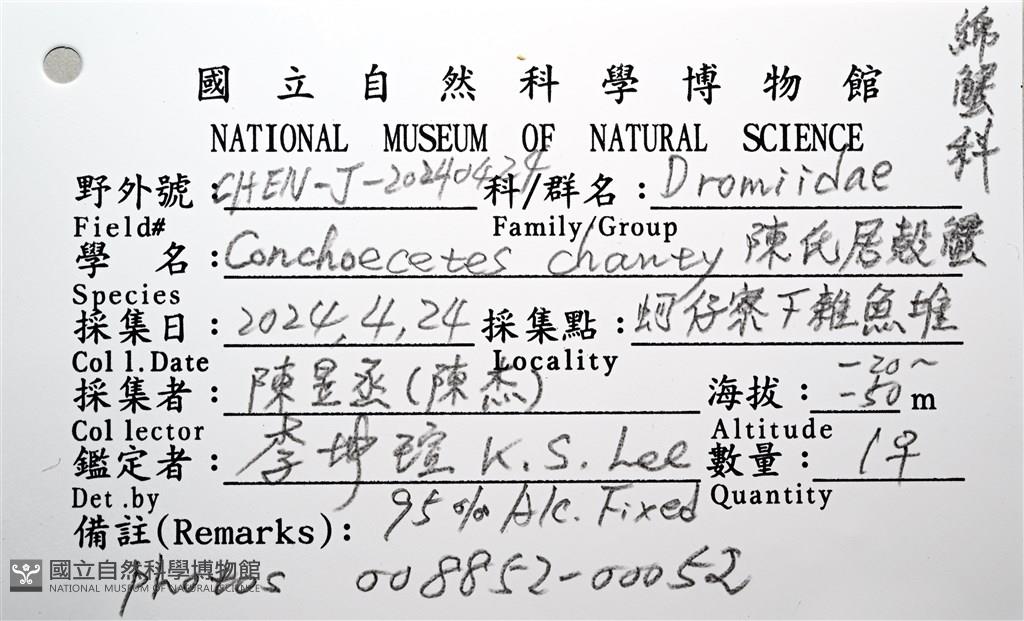 綿蟹科
國立自然科學博物館
NATIONAL MUSEUM OF NATURAL SCIENCE
野外號：CHEN-J-20240424 科/群名：Dromiidae
Field# Family/Group
學名：Conchoecetes chanty 陳氏居殼蟹
Species
採集日：2024,4,24 採集點：蚵仔寮下雜魚堆
Coll.Date Locality
採集者：陳昱丞(陳杰) 海拔：-20~-50 m
Collector Altitude
鑑定者：李坤瑄 K.S. Lee 數量：1♀
Det.by Quantity
備註(Remarks)： 95% Alc. Fixed
photos 008852-00052
國立自然科學博物館
NATIONAL MUSEUM OF NATURAL SCIENCE